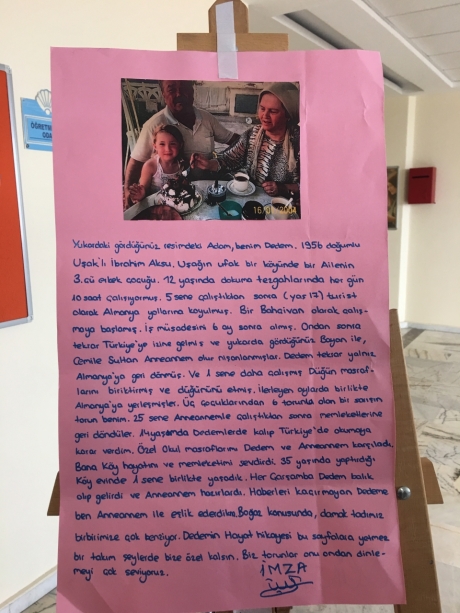 ÖĞRETMEN
ODA
16/08/2004
Yukardaki gördüğünüz resimdeki Adam, benim Dedem. 1956 doğumlu
Uşak'lı İbrahim Aksu. Uşağın ufak bir köyünde bir Ailenin
3.cü erkek çocuğu. 12 yaşında dokuma tezgahlarında her gün
10 saat çalışıyormuş. 5 sene çalıştıktan sonra (yaş 17) turist
olarak Almanya yollarına koyulmuş. Bir Bahçivan olarak çalış-
maya başlamış. İş müsadesini 6 ay sonra almış. Ondan sonra
tekrar Türkiye'ye izine gelmiş ve yukarda gördüğünüz Bayan ile,
Cemile Sultan Anneannem olur nişanlanmışlar. Dedem tekrar yalnız
Almanya'ya geri dönmüş. Ve 1 sene daha çalışmış Düğün masraf-
larını biriktirmiş ve düğününü etmiş. İlerleyen aylarda birlikte
Almanya'ya yerleşmişler. Üç çocuklarından 6 torunla olan bir sarışın
torun benim. 25 sene Anneannemle çalıştıktan sonra memleketlerine
geri döndüler. 14 yaşımda Dedemlerde kalıp Türkiye'de okumaya
karar verdim. Özel Okul masraflarımı Dedem ve Anneannem karşıladı.
Bana Köy hayatını ve memleketimi sevdirdi. 35 yaşında yaptırdığı
Köy evinde 1 sene birlikte yaşadık. Her Çarşamba Dedem balık
alıp gelirdi ve Anneannem hazırlardı. Haberleri kaçırmayan Dedeme
ben Anneannem ile eşlik ederdik. Boğaz konusunda, damak tadımız
birbirimize çok benziyor. Dedemin Hayat hikayesi bu sayfalara yetmez
bir takım şeylerde bize özel kalsın. Biz torunlar onu ondan dinle-
meyi çok seviyoruz.
İMZA